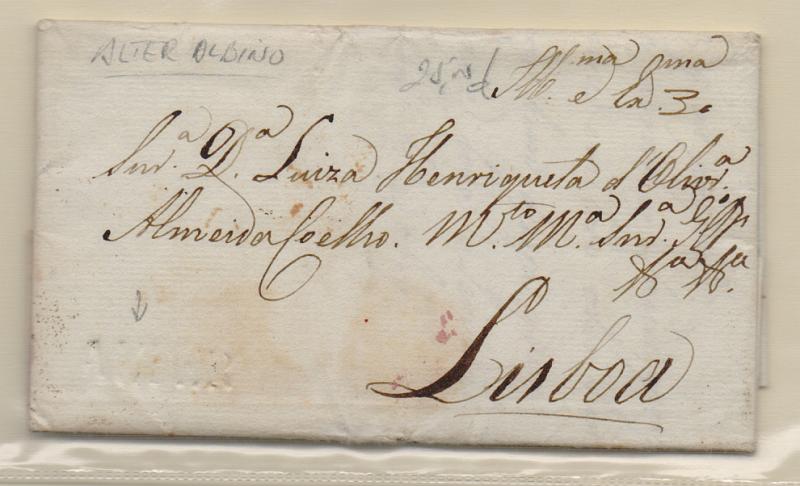 ALTER ALBINO
Ill.ma e Ex.ma
Snr.a D.a Luiza Henriqueta d'Olivr.a
Almeida Coelho. M.to M.a Snr.a
Lisboa